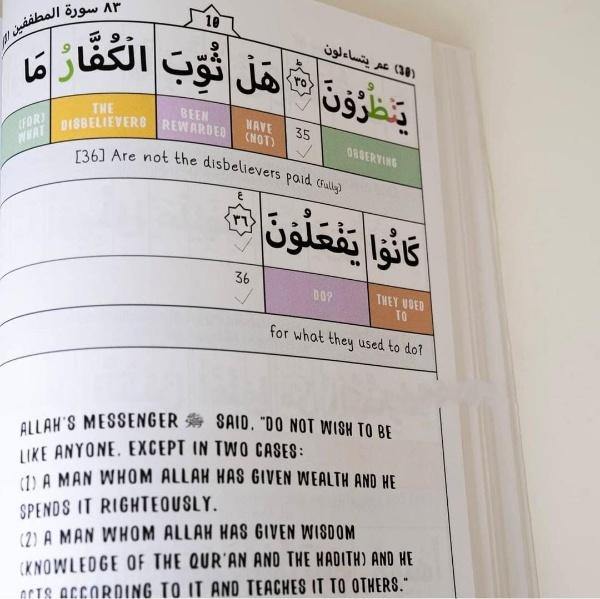 ٨٣ سورة المطففين
10
(30) عم يتساءلون
يَنْظُرُوْنَ ٣٥ ط هَلْ ثُوِّبَ الْكُفَّارُ مَا
OBSERVING 35 HAVE (NOT) BEEN REWARDED THE DISBELIEVERS (FOR) WHAT
[36] Are not the disbelievers paid (fully)
كَانُوْا يَفْعَلُوْنَ ٣٦ ع
THEY USED TO DO? 36
for what they used to do?
ALLAH'S MESSENGER ﷺ SAID, "DO NOT WISH TO BE
LIKE ANYONE, EXCEPT IN TWO CASES:
(1) A MAN WHOM ALLAH HAS GIVEN WEALTH AND HE
SPENDS IT RIGHTEOUSLY.
(2) A MAN WHOM ALLAH HAS GIVEN WISDOM
(KNOWLEDGE OF THE QUR'AN AND THE HADITH) AND HE
ACTS ACCORDING TO IT AND TEACHES IT TO OTHERS."